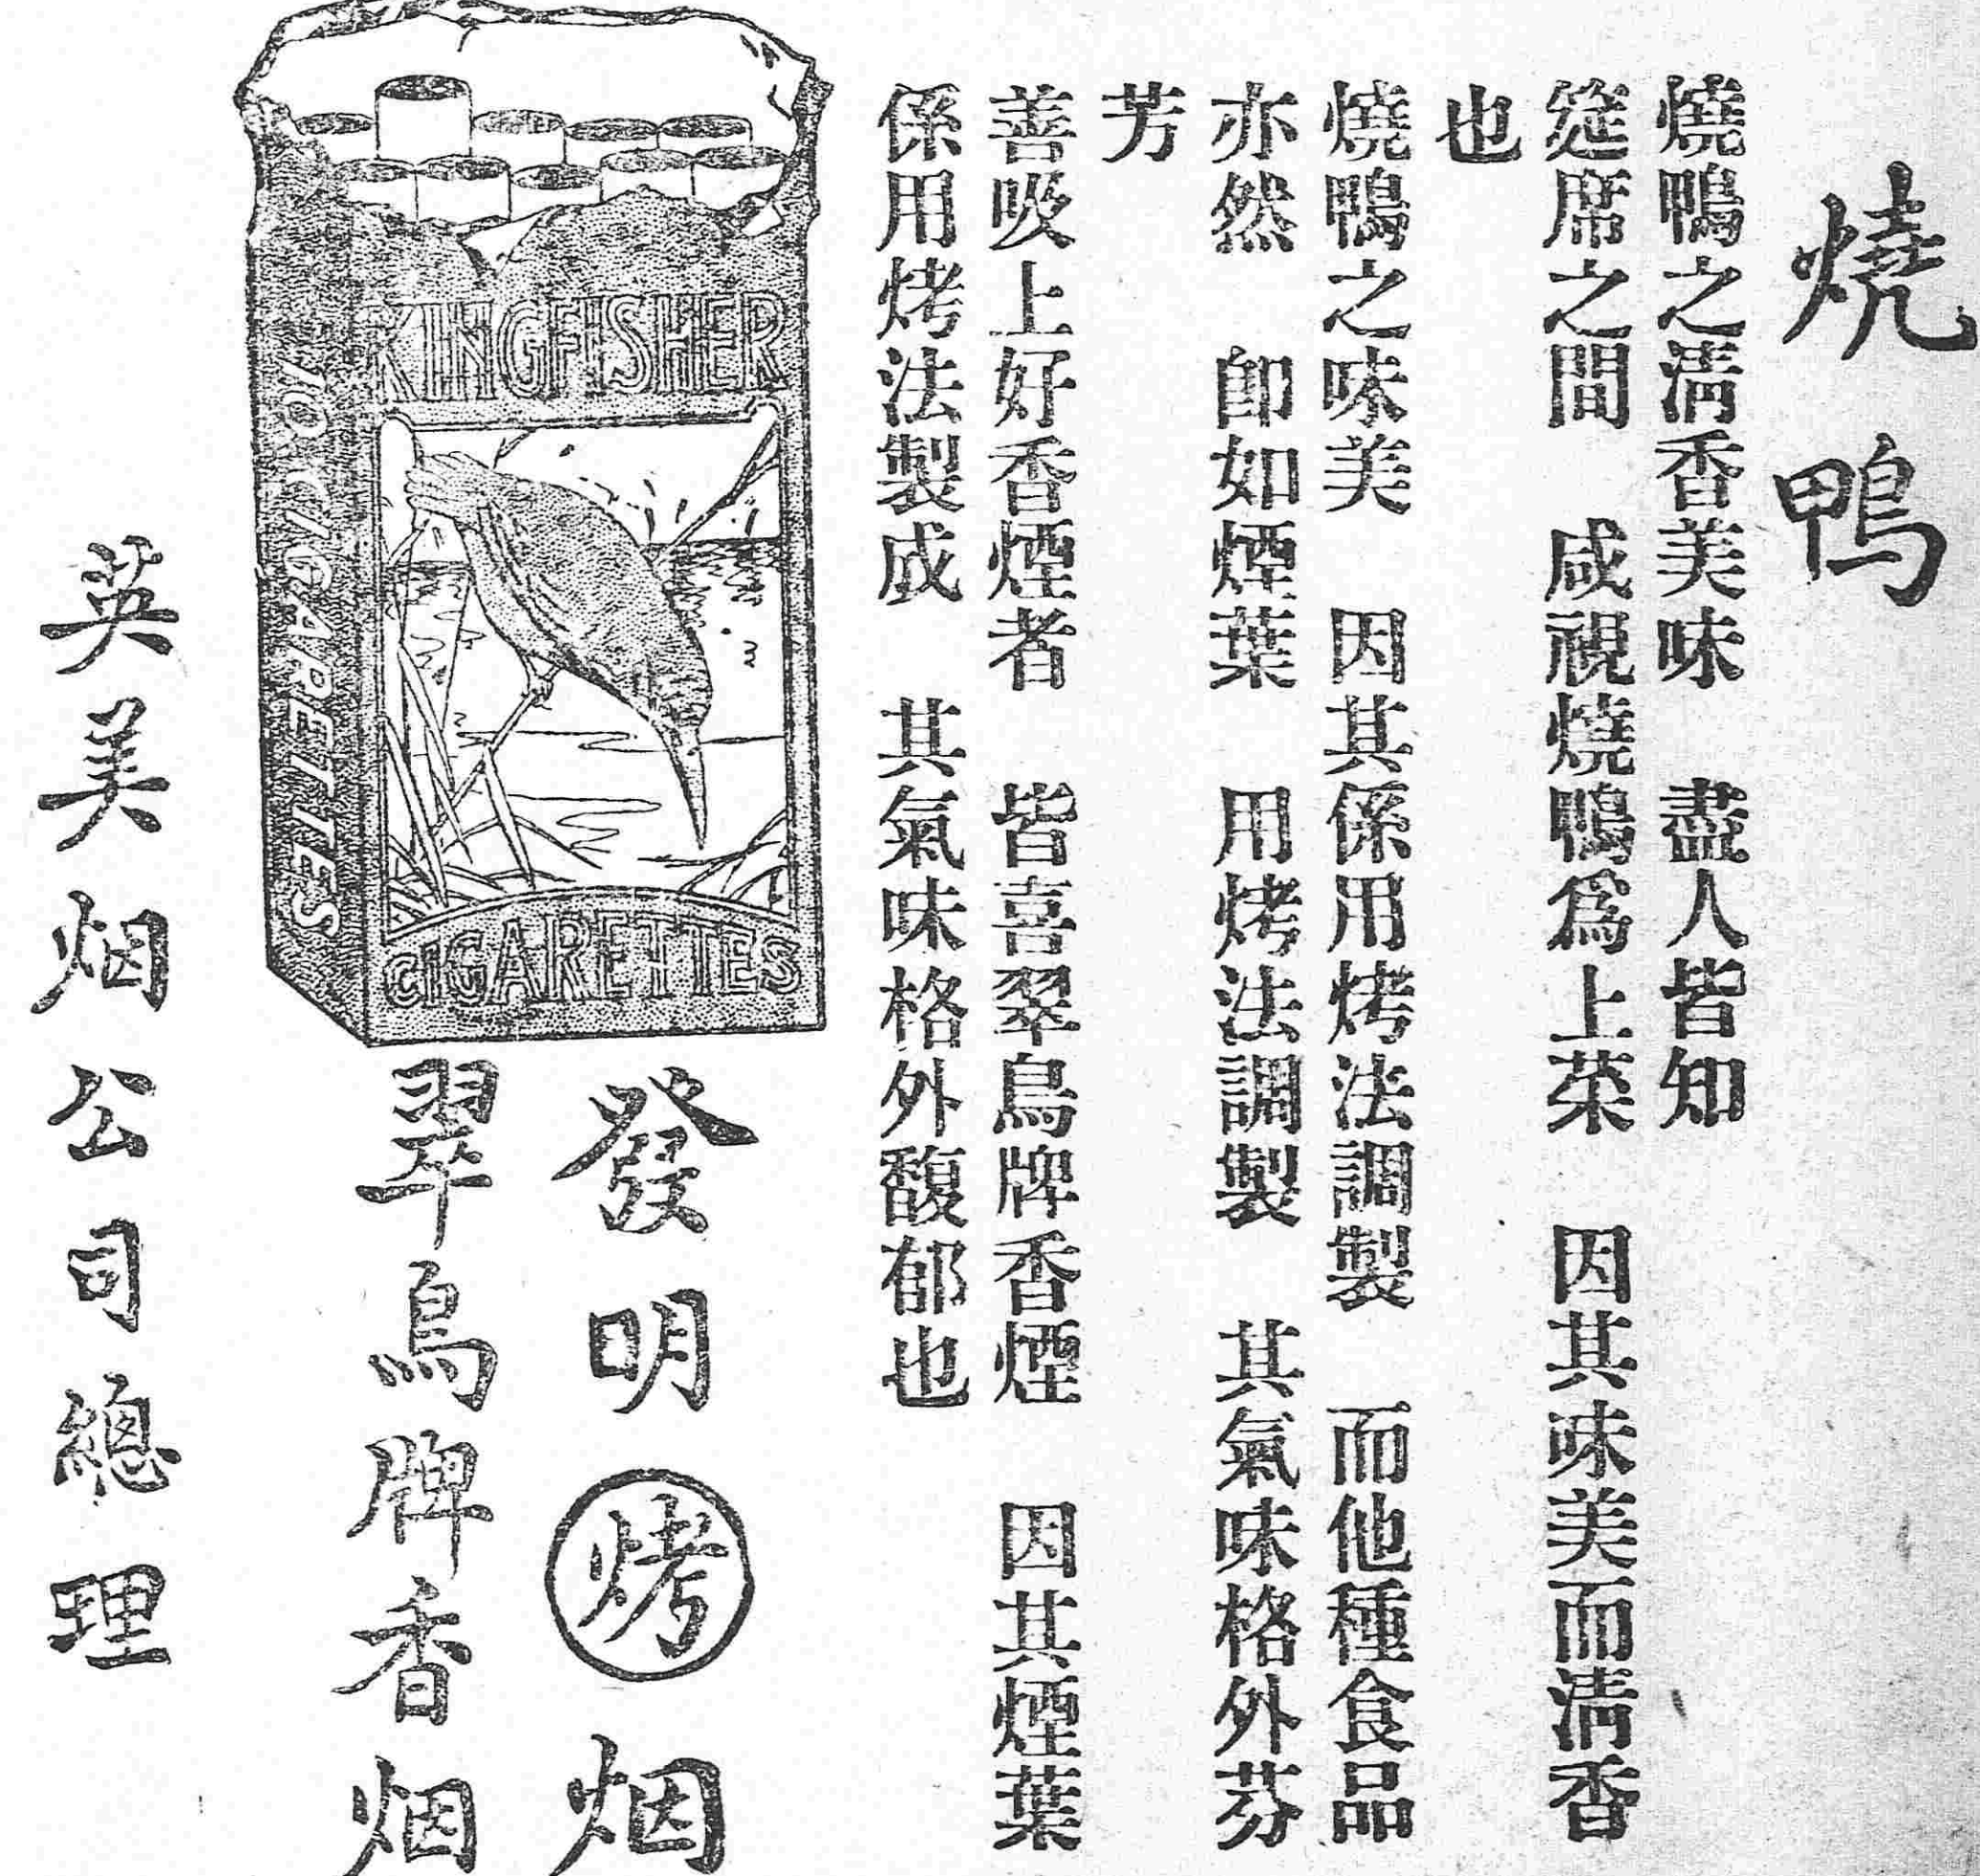 燒鴨
燒鴨之清香美味　盡人皆知
筵席之間　咸視燒鴨爲上菜　因其味美而清香
也
燒鴨之味美　因其係用烤法調製　而他種食品
亦然　即如煙葉　用烤法調製　其氣味格外芬
芳
善吸上好香煙者　皆喜翠鳥牌香煙　因其煙葉
係用烤法製成　其氣味格外馥郁也
KINGFISHER
10 CIGARETTES
CIGARETTES
發明烤烟
翠鳥牌香烟
英美烟公司總理